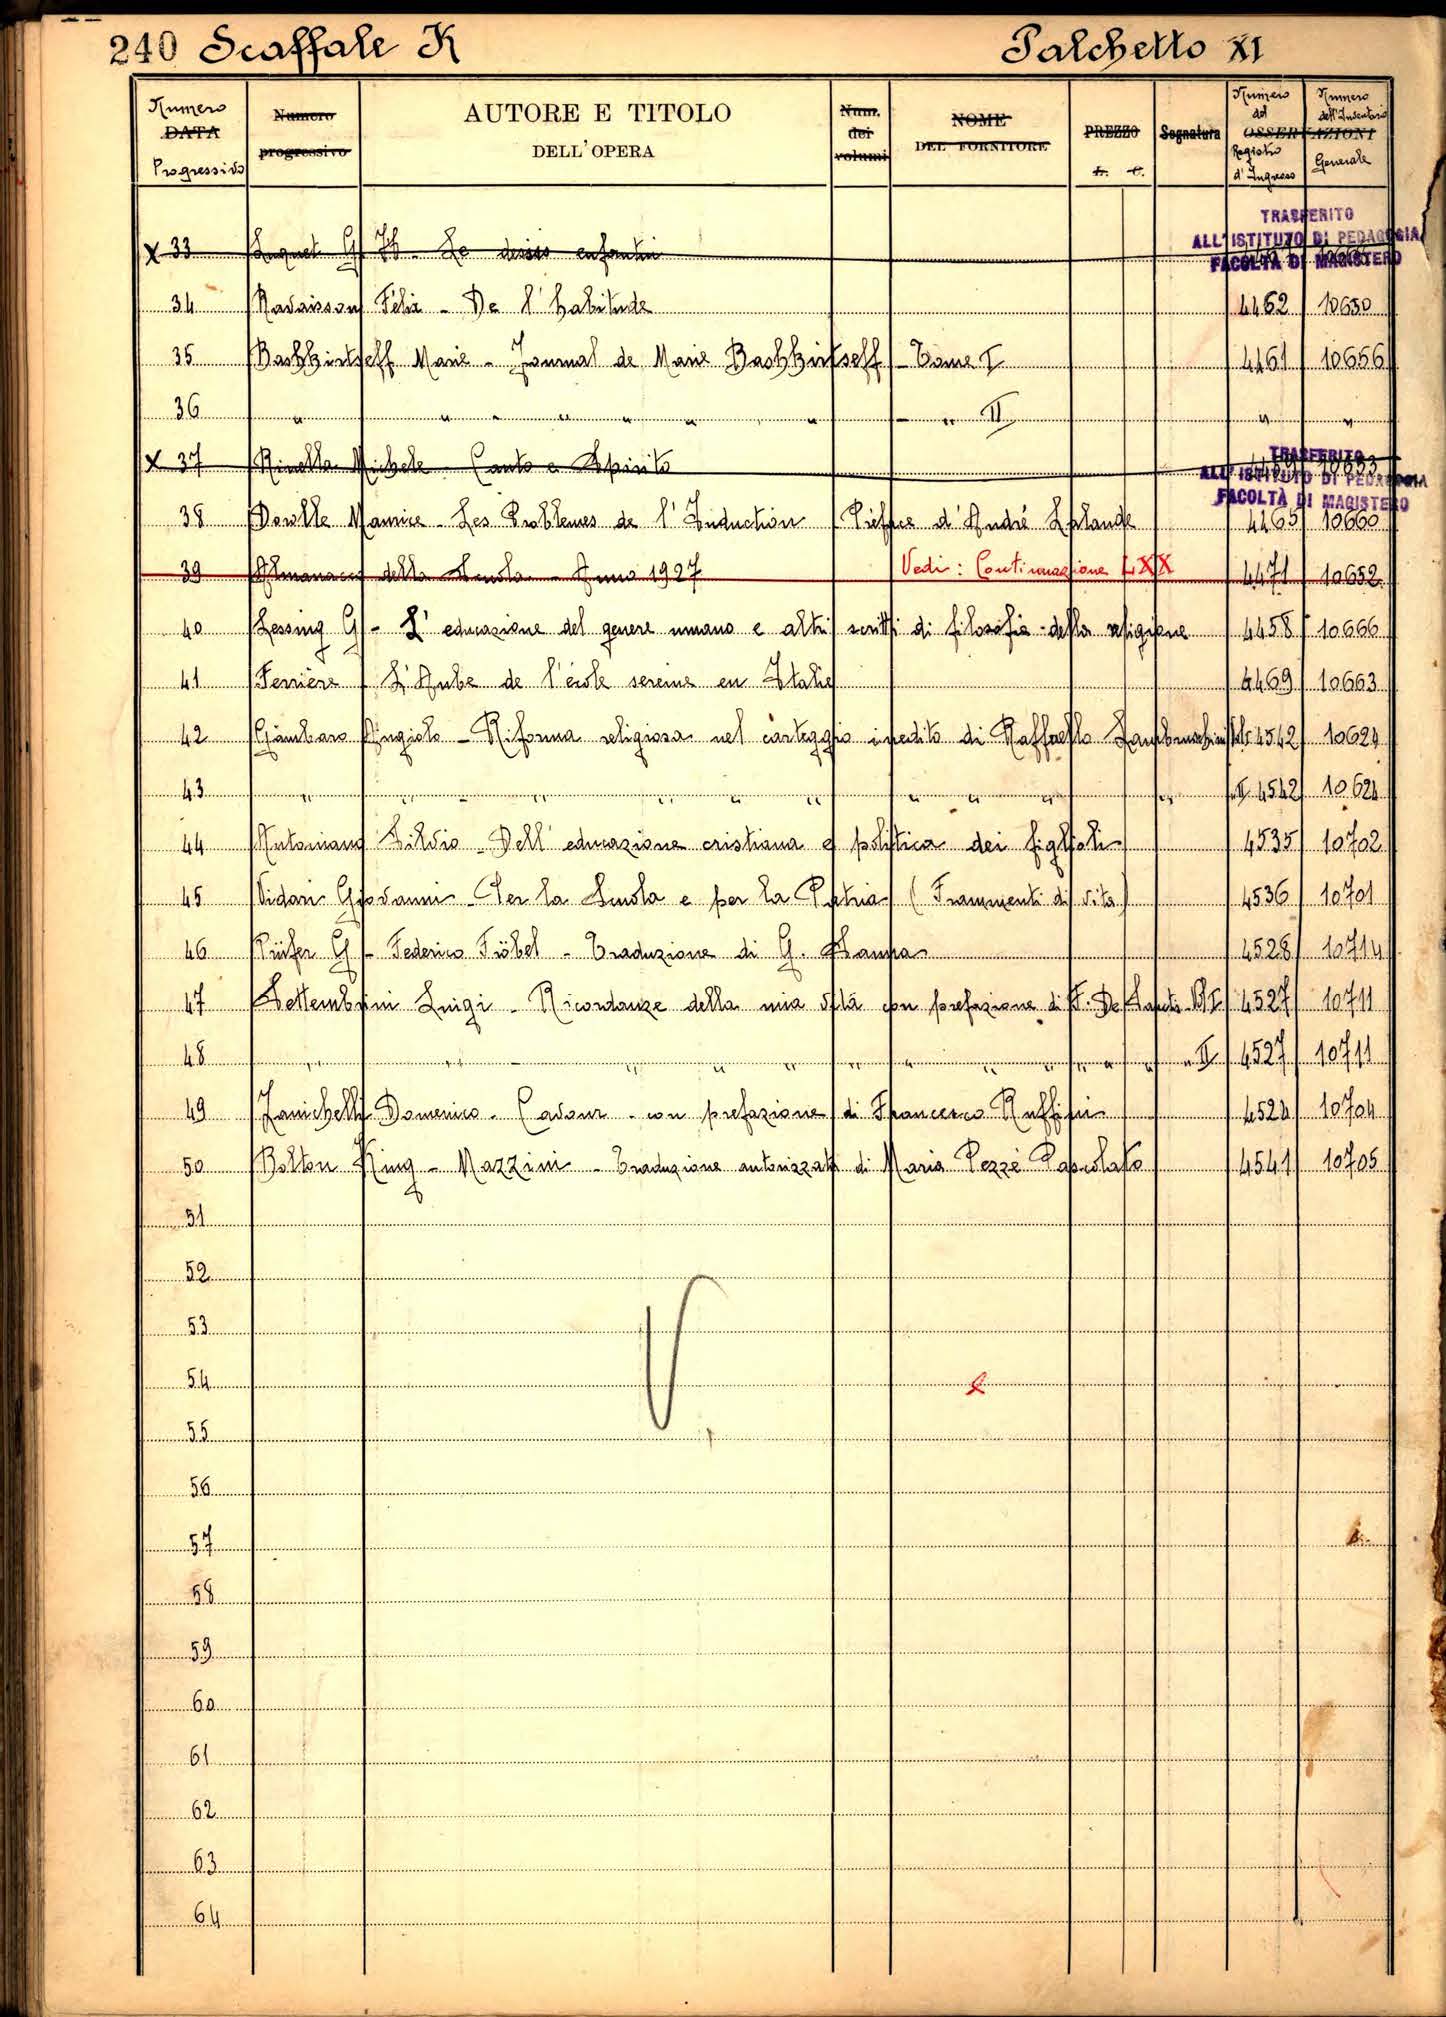 240 Scaffale K Palchetto XI
Numero DATA Progressivo
Numero progressivo
AUTORE E TITOLO
DELL'OPERA
Num. dei volumi
NOME
DEL FORNITORE
PREZZO
L. C.
Segnatura
OSSERVAZIONI
Numero del Registro d'Ingresso
Numero dell'Inventario Generale
TRASFERITO
ALL'ISTITUTO DI PEDAGOGIA
FACOLTÀ DI MAGISTERO
X 33 Luquet G H - Le dessin enfantin
34 Ravaisson Félix - De l'habitude 4462 10650
35 Bashkirtseff Marie - Journal de Marie Bashkirtseff - Tome I 4461 10656
36 " " - " " " " " - " II " "
X 37 Rinella Michele - Canto e Spirito 10653
TRASFERITO
ALL'ISTITUTO DI PEDAGOGIA
FACOLTÀ DI MAGISTERO
38 Dorolle Maurice - Les Problemes de l'Induction Préface d'André Lalande 4465 10660
39 Almanacco della Scuola - Anno 1927 Vedi: Continuazione LXX 4471 10652
40 Lessing G - L'educazione del genere umano e altri scritti di filosofia della religione 4458 10666
41 Ferrière L'Aube de l'école sereine en Italie 4469 10663
42 Gambaro Angiolo - Riforma religiosa nel carteggio inedito di Raffaello Lambruschini 4542 10624
43 " " - " " " " " " " " " II 4542 10624
44 Antoniano Silvio - Dell'educazione cristiana e politica dei figlioli 4535 10702
45 Vidari Giovanni - Per la Scuola e per la Patria (Frammenti di vita) 4536 10701
46 Prüfer G - Federico Fröbel - Traduzione di G. Sanna 4528 10714
47 Settembrini Luigi - Ricordanze della mia vita con prefazione di F. De Sanctis Vol I 4527 10711
48 " " - " " " " " " " " " " II 4527 10711
49 Zanichelli Domenico - Cavour - con prefazione di Francesco Ruffini 4524 10704
50 Bolton King - Mazzini - Traduzione autorizzata di Maria Pezzé Pascolato 4541 10705
51
52
53
54
55
56
57
58
59
60
61
62
63
64